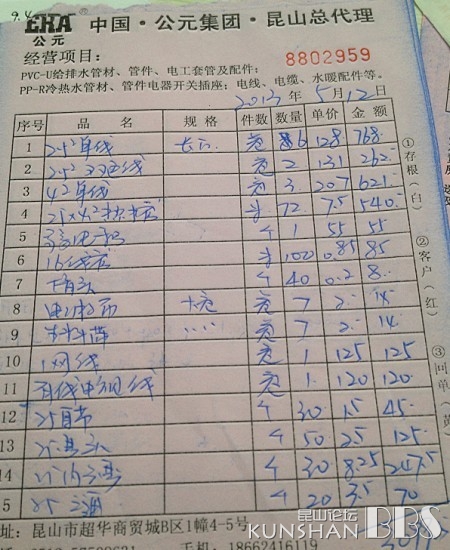 9.4
ERA 中国·公元集团·昆山总代理
公元
经营项目: 8802959
PVC-U给排水管材、管件、电工套管及配件;
PP-R冷热水管材、管件电器开关插座;电线、电缆、水暖配件等。
2013 年 5月12日
序号 品 名 规 格 件数 数量 单价 金 额
1 2.5² 单线 卷 6 128 768.
2 2.5² 双色线 卷 2 131 262.
3 4² 单线 卷 3. 207 621.
4 25×4² 米 72. 7.5 540.
5 个 1 55 55
6 16线 米 100 0.85 85
7 个 40 0.2 8.
8 电胶布 大卷 卷 7 2. 14
9 卷 7 2. 14.
10 网线 卷 1 125 125
11 有线电视线 卷 1. 120 120.
12 个 30 1.5 45.
13 个 50 2.5 125.
14 个 30 8.25 247.5
15 个 20 3.5 70
①存根(白)
②客户(红)
③回单(黄)
址:昆山市超华商贸城B区1幢4-5号
手机:18662416119
昆山论坛
KUNSHAN BBS